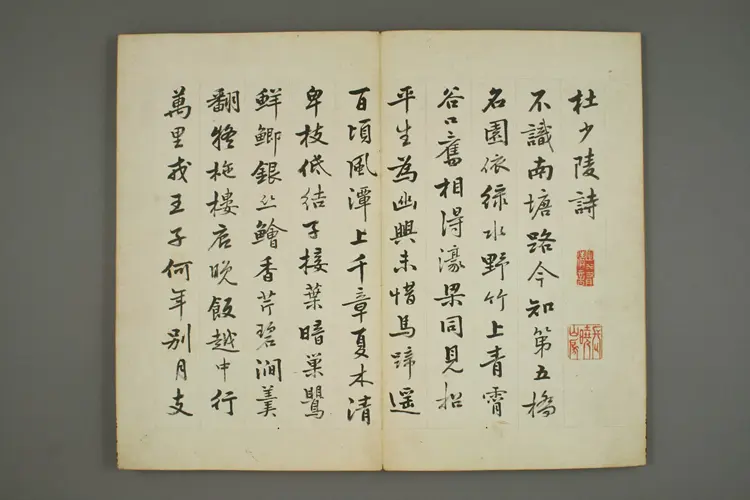 杜少陵詩
不識南塘路今知第五橋
名園依綠水野竹上青霄
谷口舊相得濠梁同見招
平生為幽興未惜馬蹄遥
百頃風潭上千章夏木清
卑枝低結子接葉暗巢鶯
鮮鯽銀丝鱠香芹碧澗羹
翻疑柂樓底晚飯越中行
萬里戎王子何年别月支